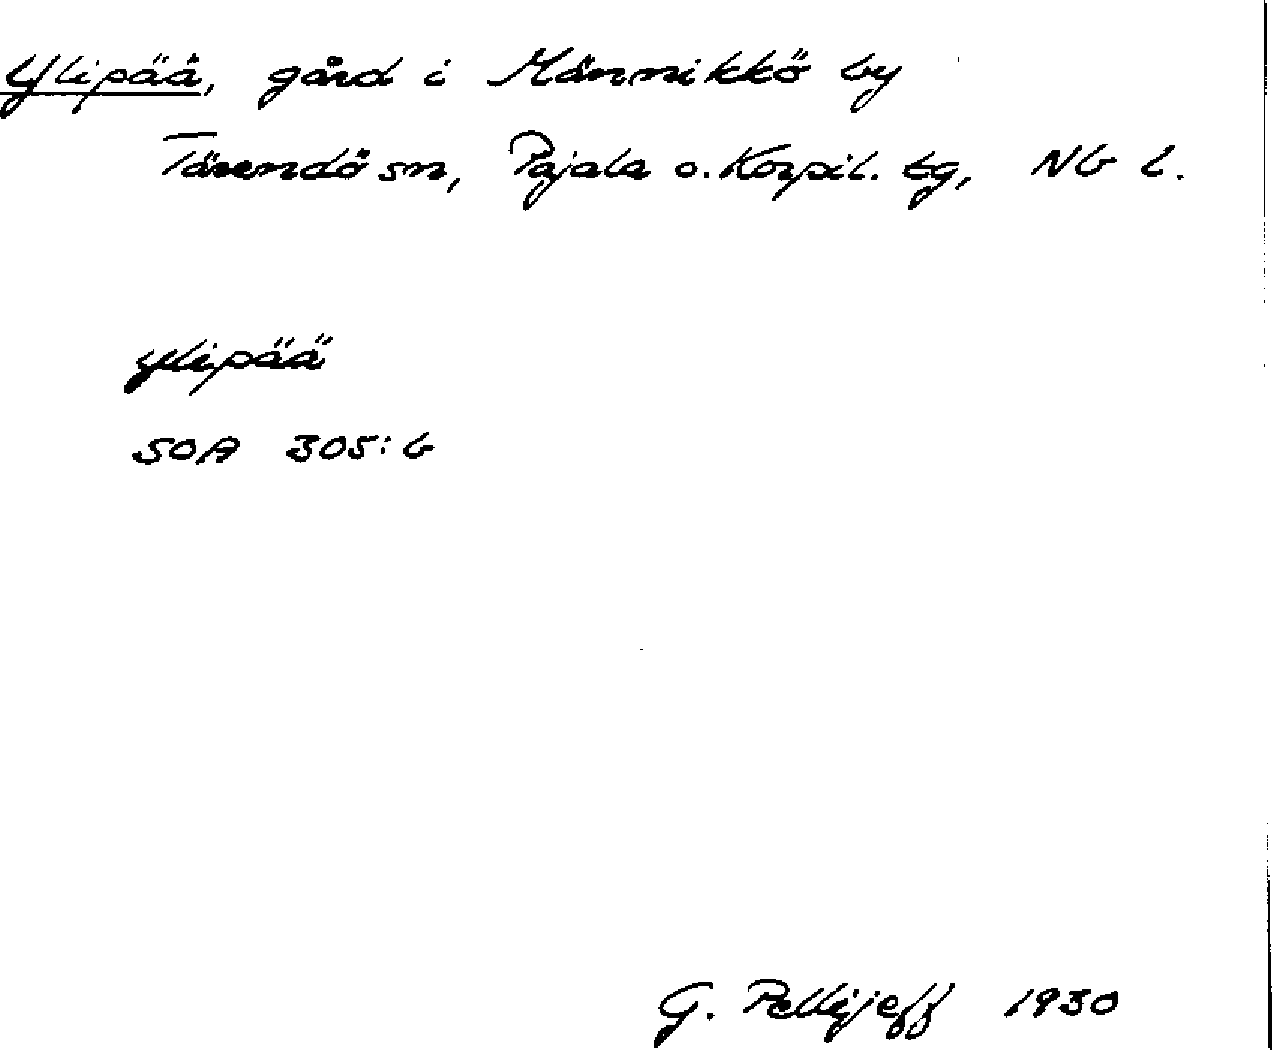 Ylipää, gård i Männikkö by
Tärendö sn, Pajala o. Korpil. tg, Nb l.
ylipää
SOA 305:6
G. Pellijeff 1930